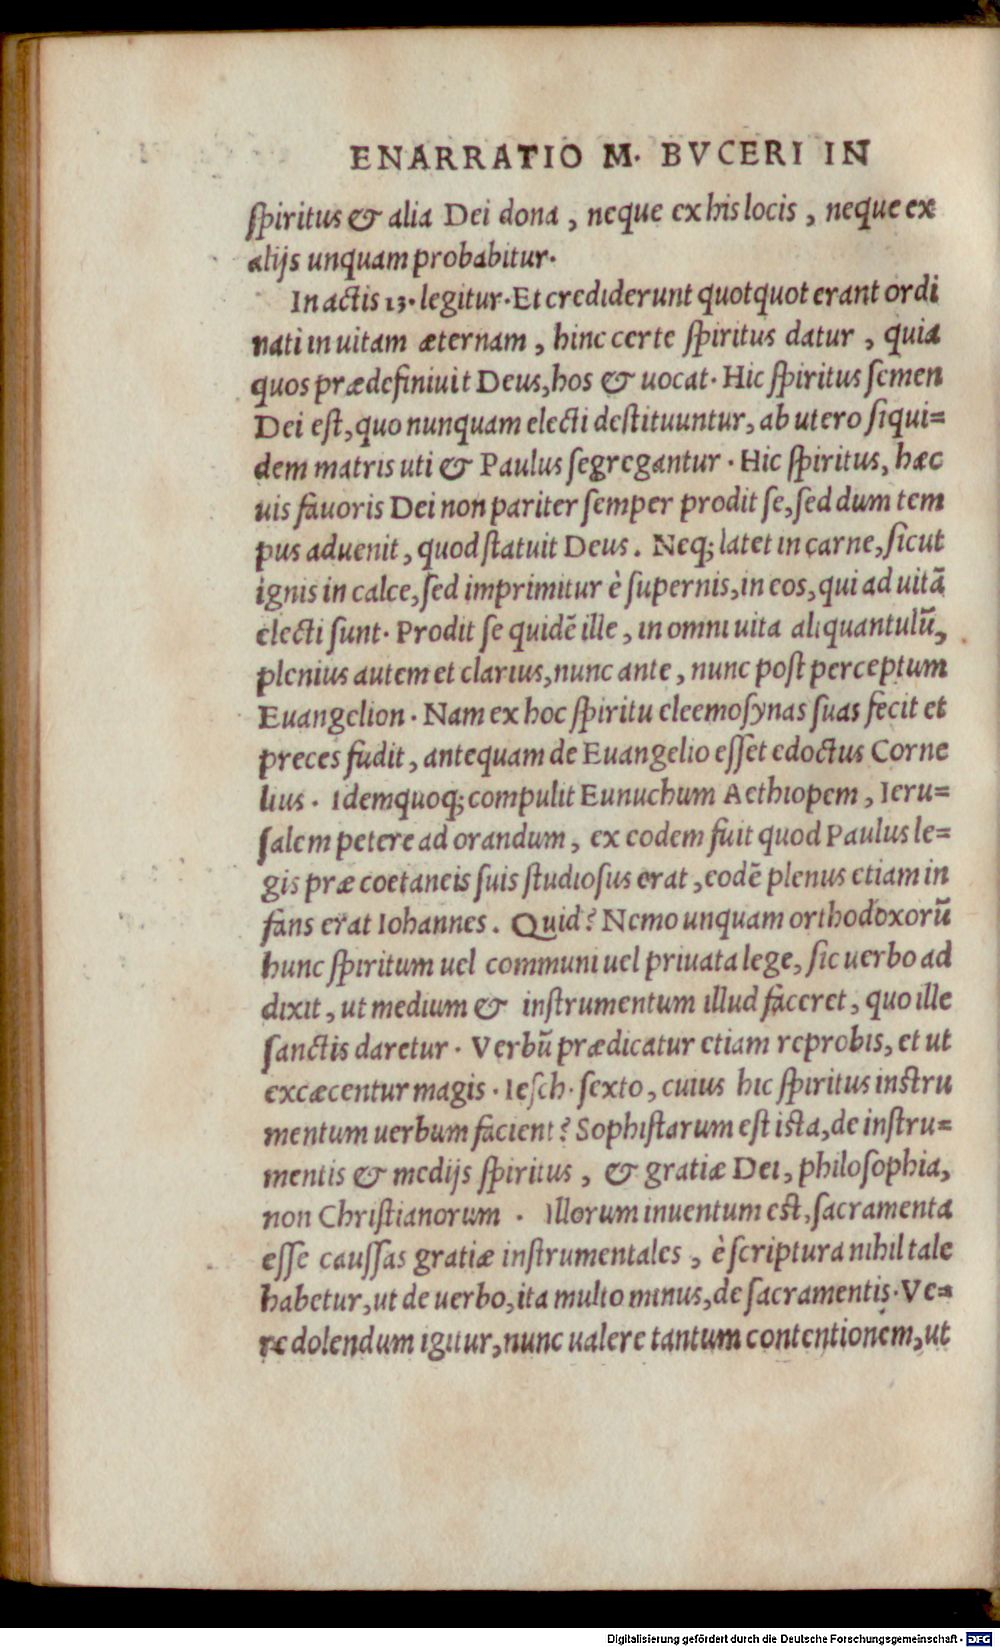 ENARRATIO M. BVCERI IN
ſpiritus & alia Dei dona, neque ex his locis, neque ex
alijs unquam probabitur.
In actis 13. legitur. Et crediderunt quotquot erant ordi
nati in uitam æternam, hinc certe ſpiritus datur, quia
quos prædefiniuit Deus, hos & uocat. Hic ſpiritus ſemen
Dei eſt, quo nunquam electi deſtituuntur, ab utero ſiqui=
dem matris uti & Paulus ſegregantur. Hic ſpiritus, hæc
uis fauoris Dei non pariter ſemper prodit ſe, ſed dum tem
pus aduenit, quod ſtatuit Deus. Neq; latet in carne, ſicut
ignis in calce, ſed imprimitur è ſupernis, in eos, qui ad uitã
electi ſunt. Prodit ſe quidẽ ille, in omni uita aliquantulũ,
plenius autem et clarius, nunc ante, nunc poſt perceptum
Euangelion. Nam ex hoc ſpiritu eleemoſynas ſuas fecit et
preces fudit, antequam de Euangelio eſſet edoctus Corne
lius. Idem quoq; compulit Eunuchum Aethiopem, Ieru=
ſalem petere ad orandum, ex eodem fuit quod Paulus le=
gis præ coetaneis ſuis ſtudioſus erat, eodẽ plenus etiam in
fans erat Iohannes. Quid? Nemo unquam orthodoxorũ
hunc ſpiritum uel communi uel priuata lege, ſic uerbo ad
dixit, ut medium & inſtrumentum illud faceret, quo ille
ſanctis daretur. Verbũ prædicatur etiam reprobis, et ut
excæcentur magis. Ieſch. ſexto, cuius hic ſpiritus inſtru
mentum uerbum facient? Sophiſtarum eſt iſta, de inſtru=
mentis & medijs ſpiritus, & gratiæ Dei, philoſophia,
non Chriſtianorum. Illorum inuentum eſt, ſacramenta
eſſe cauſſas gratiæ inſtrumentales, è ſcriptura nihil tale
habetur, ut de uerbo, ita multo minus, de ſacramentis. Ve=
re dolendum igitur, nunc ualere tantum contentionem, ut
Digitalisierung gefördert durch die Deutsche Forschungsgemeinschaft - DFG